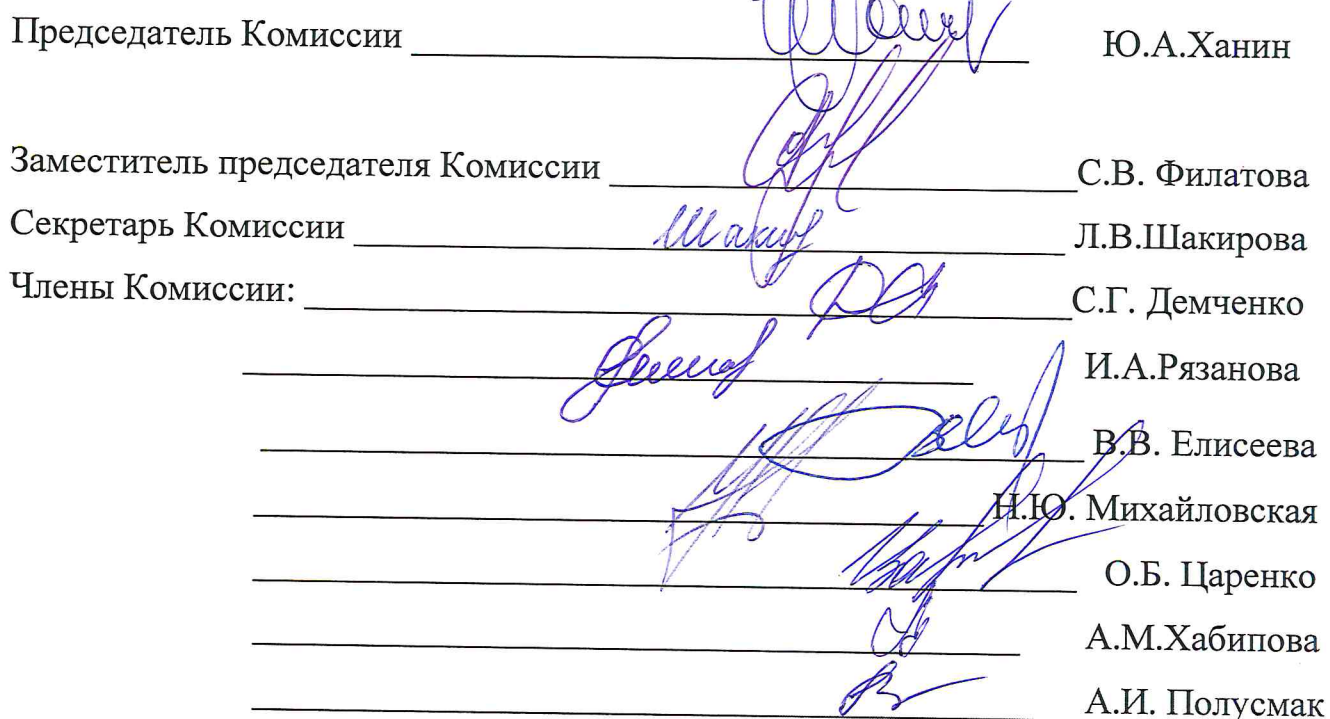 Председатель Комиссии Ю.А.Ханин
Заместитель председателя Комиссии С.В. Филатова
Секретарь Комиссии Л.В.Шакирова
Члены Комиссии: С.Г. Демченко
И.А.Рязанова
В.В. Елисеева
Н.Ю. Михайловская
О.Б. Царенко
А.М.Хабипова
А.И. Полусмак